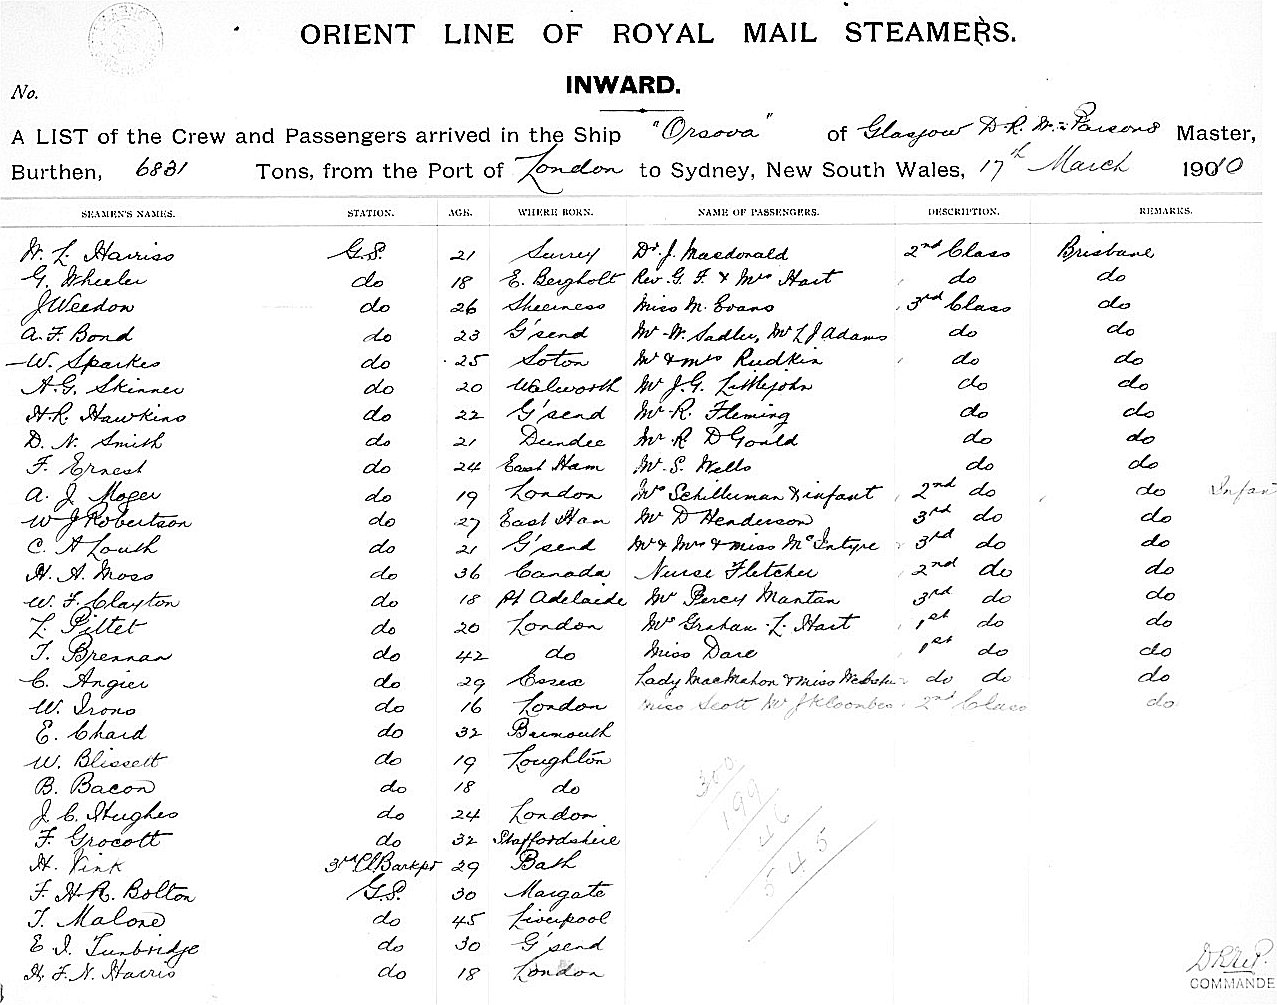 ORIENT LINE OF ROYAL MAIL STEAMERS.
INWARD.
No.
A LIST of the Crew and Passengers arrived in the Ship "Orsova" of Glasgow D. R. M. Parsons Master,
Burthen, 6831 Tons, from the Port of London to Sydney, New South Wales, 17th March 1910
SEAMEN'S NAMES. STATION. AGE. WHERE BORN. NAME OF PASSENGERS. DESCRIPTION. REMARKS.
W. L. Harriss G.S. 21 Surrey Dr J. Macdonald 2nd Class Brisbane
G. Wheeler do 18 E. Bergholt Rev. G. F. & Mrs Hart do do
J Weedon do 26 Sheerness Miss M. Evans 3rd Class do
A. F. Bond do 23 G'send Mr W. Sadler, Mr L J Adams do do
W. Sparkes do 25 Soton Mr & Mrs Rudkin do do
A. G. Skinner do 20 Walworth Mr J. G. Littlejohn do do
H. R. Hawkins do 22 G'send Mr R. Fleming do do
D. N. Smith do 21 Dundee Mr R D Gould do do
F. Ernest do 24 East Ham Mr S. Wells do do
A. J. Moger do 19 London Mrs Schilluman & infant 2nd do do Infan
W J Robertson do 27 East Ham Mr D Henderson 3rd do do
C. A Louth do 21 G'send Mr & Mrs & Miss McIntyre 3rd do do
H. A. Moss do 36 Canada Nurse Fletcher 2nd do do
W. F. Clayton do 18 Pt Adelaide Mr Percy Mantan 3rd do do
L. Pittet do 20 London Mrs Graham L. Hart 1st do do
T. Brennan do 42 do Miss Dare 1st do do
C. Angier do 29 Essex Lady MacMahon & Miss Webster do do do
W. Irons do 16 London Miss Scott Mr J 2nd Class do
E. Chard do 32
W. Blissett do 19 Loughton
B. Bacon do 18 do
J. C. Hughes do 24 London
F. Grocott do 32 Staffordshire
H. Vink 3rd Cl. Barkpr 29 Bath
F. H. R. Bolton G.S. 30 Margate
T. Malone do 45 Liverpool
E I. Tunbridge do 30 G'send
H. F. N. Harris do 18 London
300
199
46
545
D.R.M.P.
COMMANDE